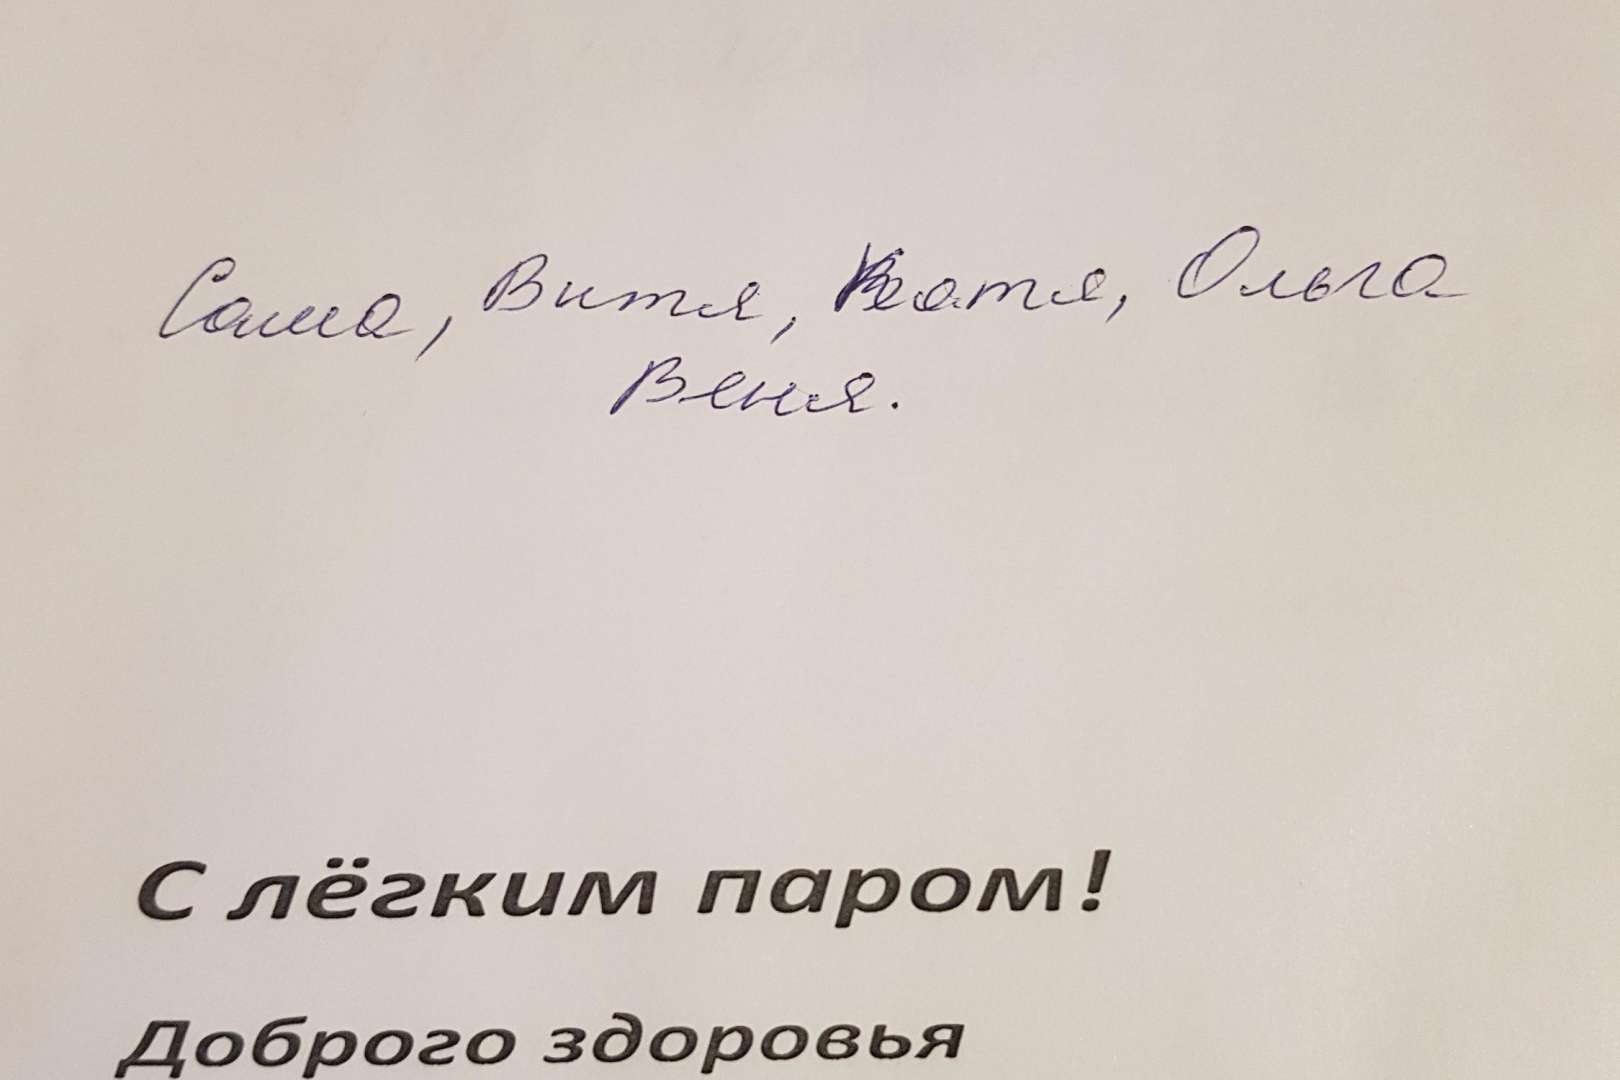 Саша, Витя, Катя, Ольга
Веня.
С лёгким паром!
Доброго здоровья